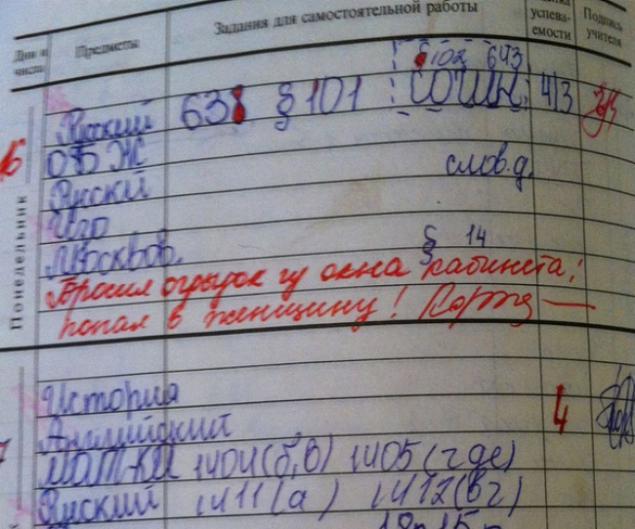 Дни и числа Предметы Задания для самостоятельной работы успева-емости Подпись учителя
§102 643
Русский 638 § 101 СОЧИН. 4/3
ОБЖ
Русский слов.д.
Изо
Москвов. § 14
Понедельник
Бросил огрызок из окна кабинета;
попал в женщину!
История
Английский 4
МАТ-КА 1404(б,в) 1405(где)
Русский 1411(а) 1412(вг)